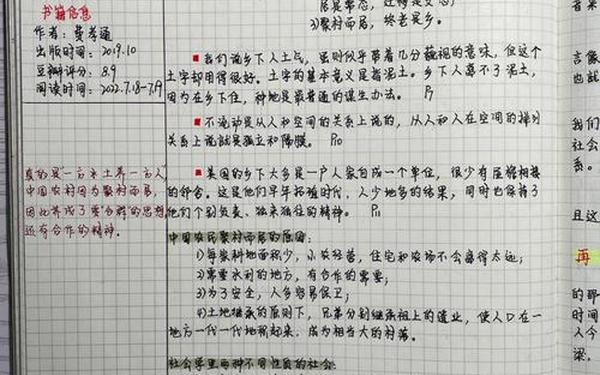 书籍信息
作者：费孝通
出版时间：2019.10
豆瓣评分：8.9
阅读时间：2022.7.18-7.19
真的是"一方水土养一方人"
中国农村因为聚村而居，
因此养成了要合群的思想，
还有合作的精神。
3)聚村而居，终老是乡。
我们说乡下人土气，虽则似乎带着几分藐视的意味，但这个
土字却用得很好。土字的基本意义是指泥土。乡下人离不了泥土，
因为在乡下住，种地是最普通的谋生办法。
不流动是从人和空间的关系上说的，从人和人在空间的排列
关系上说就是孤立和隔膜。 P10
美国的乡下大多是一户人家自成一个单位，很少有屋檐相接
的邻舍。这是他们早年拓殖时代，人少地多的结果，同时也保持了
他们个别负责、独来独往的精神。 P11
中国农民聚村而居的原因：
1)每家耕地面积少，小农经营，住宅和农场不会离得太远；
2)需要水利的地方，有合作的需要；
3)为了安全，人多容易保卫；
4)土地继承的原则下，兄弟分别继承祖上的遗业，使人口在一
地方一代一代地积起来，成为相当大的村落。
社会学里两种不同性质的社会：
言像
也就
我们
社会
系。
且这
再
的那
时间
人今
梁，